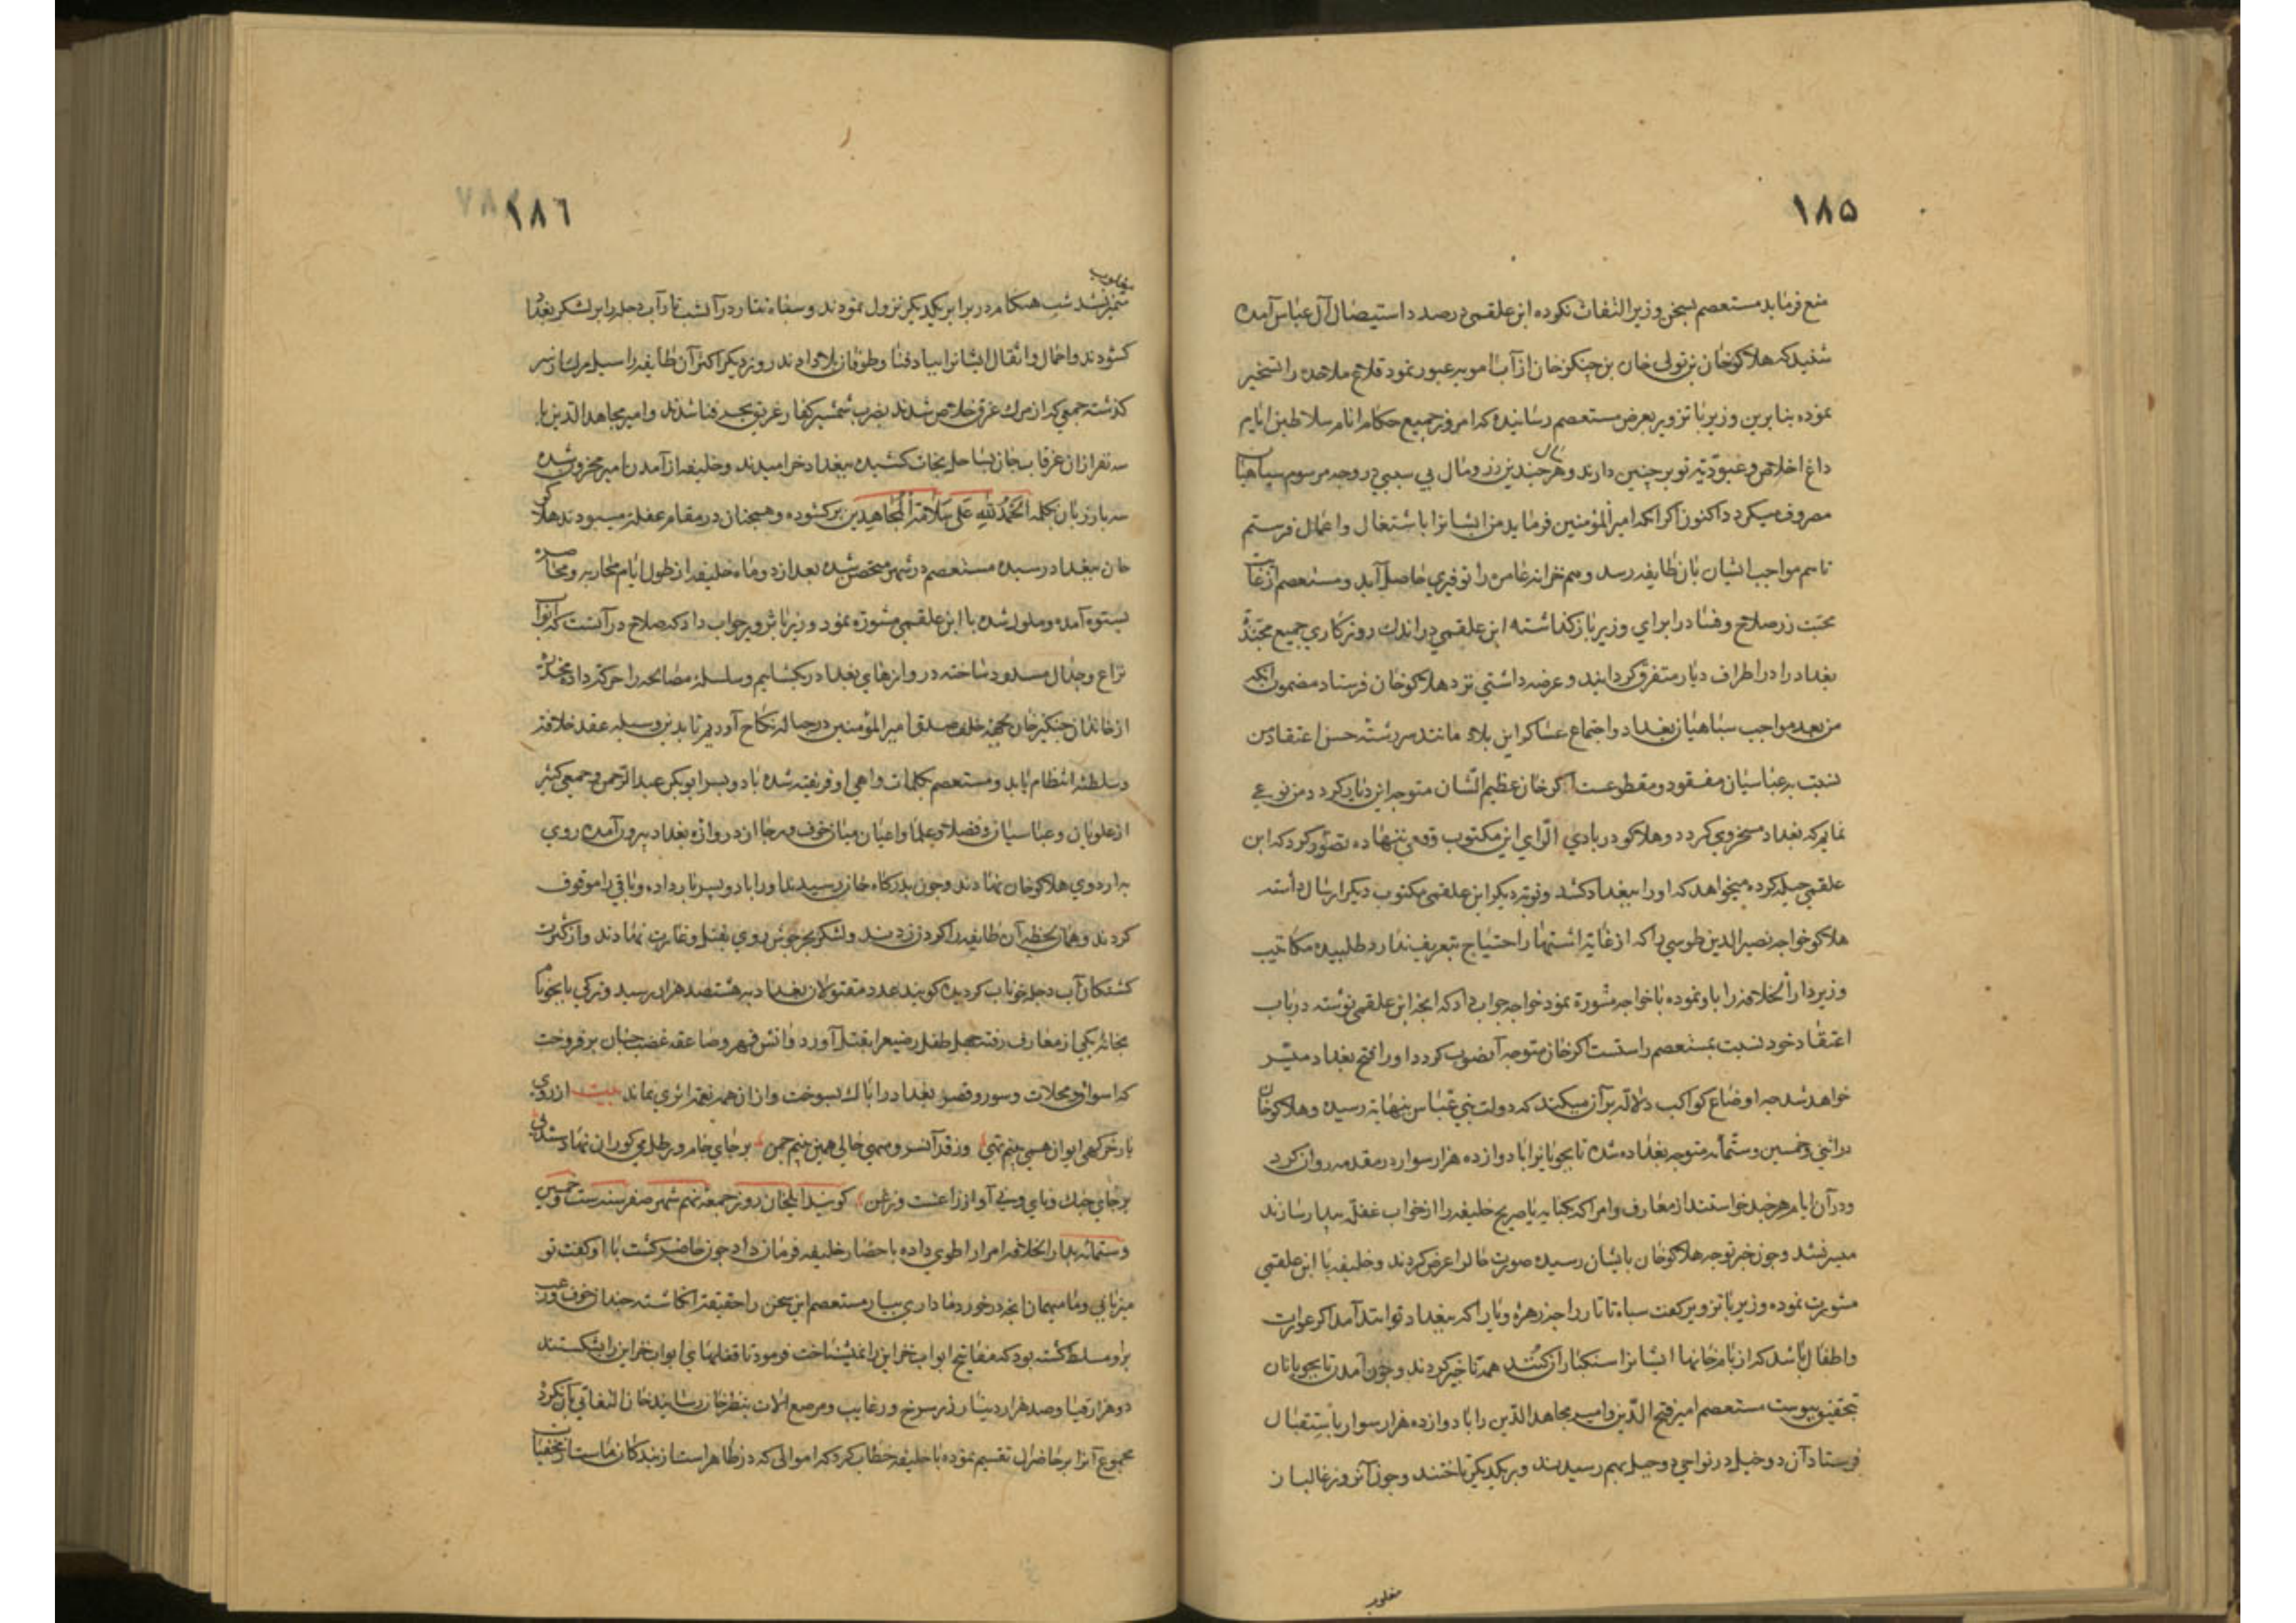 ۱۸۵
منع فرماید مستعصم بسخن وزیر التفات نکرده ابن علقمی در صدد استیصال آل عباس آمده
شنید که هلاکوخان بن تولی خان بن چنکزخان از آب امویه عبور نمود قلاع ملاحده را تسخیر
نموده بنابرین وزیر با تزویر بعرض مستعصم رسانیده که امروز جمیع حکام انام و سلاطین ایام
داغ اخلاص و عبودیت تو بر جبین دارند و هر چندین زر و مال بی سببی در وجه مرسوم سپاهیان
مصروف میکردد اکنون اکر انکه امیر المؤمنین فرماید من ایشانرا باشتغال و اعمال فرستم
تا هم مواجب ایشان بان طایفه رسد و هم خزانه عامره را توفیری حاصل آید و مستعصم از غایت
محبت زر صلاح و فساد را برای وزیر باز کذاشته ابن علقمی در اندك روزکاری جمیع مجنده
بغداد را در اطراف دیار متفرق کردانید و عرضه داشتی نزد هلاکوخان فرستاد مضمون آنکه
من بعد مواجب سپاهیان بغداد و اجتماع عساکر این بلاد مانند سررشته حسن اعتقاد من
نسبت بر عباسیان مفقود و مقطوعست اکر خان عظیم الشان متوجه این دیار کردد من نوعی
نمایم که بغداد مسخر وی کردد و هلاکو در بادی الرای این مکتوب وقعی ننهاده تصور کرد که ابن
علقمی حیله کرده میخواهد که او را ببغداد کشد و نوبه دیکر ابن علقمی مکتوب دیکر ارسال داشته
هلاکو خواجه نصیر الدین طوسی را که از غایة اشتهار احتیاج بتعریف ندارد طلبیده مکاتیب
وزیر دار الخلافه را باو نموده با خواجه مشورة نمود خواجه جواب داد که انچه ابن علقمی نوشته در باب
اعتقاد خود نسبت بمستعصم راستست اکر خان متوجه آنصوب کردد او را فتح بغداد میسر
خواهد شد چه اوضاع کواکب دلالة بر آن میکند که دولت بنی عباس بنهایة رسیده و هلاکوخان
در اثنی و خمسین و ستمائه متوجه بغداد شده تابجونیانرا با دوازده هزار سوار در مقدمه روان کرد
و در آن ایام هر چند خواستند از معارف و امرا که بکنایه یا صریح خلیفه را از خواب غفلة بیدار سازند
میسر نشد و چون خبر توجه هلاکوخان بایشان رسیده صورت حالرا عرض کردند و خلیفه با ابن علقمی
مشورت نموده وزیر با تزویر کفت سپاه تاتار را چه زهره و یارا که ببغداد توانند آمد اکر عورات
و اطفال باشد که از بام خانها ایشانرا سنکسار کنند همه تاخیر کردند و چون آمدن تابجویانان
تحقیق پیوست مستعصم امیر فتح الدین و امیر مجاهد الدین را با دوازده هزار سوار باستقبال
فرستاد آن دو خیل در نواحی دوجیل بهم رسیدند و بر یکدیکر تاختند و چون آنروز غالب از
مغلوب
۱۸۶
مغلوب
متمیز نشد شب هنکام در برابر یکدیکر نزول نمودند و سفاه تتار در آنشب نار آب دجله را بر لشکر بغداد
کشودند و احمال و اثقال ایشانرا بباد فنا و طوفان بلا دادند روز دیکر اکثر آن طایفه را سیل مرك از سر
کذشته جمعی که از مرك غرق خلاص شدند بضرب شمشیر کفار غریق بحر فنا شدند و امیر مجاهد الدین با
سه نفر از ان غرقاب جان بساحل نجات کشیده ببغداد خرامیدند و خلیفه از آمدن امیر محزون شده
سه بار زبان بکلمه الحمد لله علی سلامة المجاهدین بر کشوده و همچنان در مقام غفلة میبودند هلاکو
خان ببغداد رسیده مستعصم در شهر متحصن شده بعد از دو ماه خلیفه از طول ایام محاربه و محاصره
بستوه آمده و ملول شده با ابن علقمی مشورة نمود وزیر با تزویر جواب داد که صلاح در آنست که ابواب
نزاع و جدال مسدود ساخته دروازهای بغداد بکشایم و سلسلة مصالحه را حرکة داده مخدرة
از خاندان چنکیزخان بجهة خلف صدق امیر المؤمنین در حباله نکاح آوریم تا بدین وسیله عقد خلافة
و سلطنة انتظام یابد و مستعصم بکلمات واهی او فریفته شده با دو پسر ابوبکر و عبد الرحمن و جمعی کثیر
از علویان و عباسیان و فضلا و علما و اعیان میان خوف و رجا از دروازه بغداد بیرون آمده روی
به اردوی هلاکوخان نهادند و چون بدرکاه خان رسیدند او را با دو پسر بار داده و باقی را موقوف
کردند و همان لحظه آن طایفه را کردن زدند و لشکر بجوش روی بقتل و غارت نهادند و از کثرت
کشتکان آب دجله خوناب کردید کویند عدد مقتولان بغداد بر هشتصد هزار رسید و ترکی بایجو نام
بخانه یکی از معارف رفته چهل طفل رضیعرا بقتل آورد و آتش قهر و صاعقه غضب چنان بر فروخت
که اسواق و محلات و سور و قصور بغداد را پاك بسوخت و از ان همه نعمة اثری نماند بیت از روی
یار خرکهی ایوان همی بینم تهی وز قد آن سرو سهی خالی همی بینم چمن بر جای جام و رطل می کوران نهادستند پی
بر جای چنك و نای و نی آواز زاغست و زغن کویند ایلخان روز جمعه نهم شهر صفر سنه ست و خمسین
و ستمائه بدار الخلافه امرا را طوی داده باحضار خلیفه فرمان داد چون حاضر کشت با او کفت تو
میزبانی و ما میهمان انچه در خور ما داری بیار مستعصم این سخن را حقیقة انکاشته چندان خوف و رعب
بر او مسلط کشته بود که مفاتیح ابواب خزاین را نمیشناخت فرمود تا قفلهای ابواب خزاین را شکستند
دو هزار قبا و صد هزار دینار زر سرخ و رغایب و مرصع الات بنظر خان رسانید خان التفاتی بان نکرد
مجموع آنرا بر حاضران تقسیم نموده با خلیفه خطاب کرد که اموالی که در ظاهر است از بندکان ماست از مخفیات